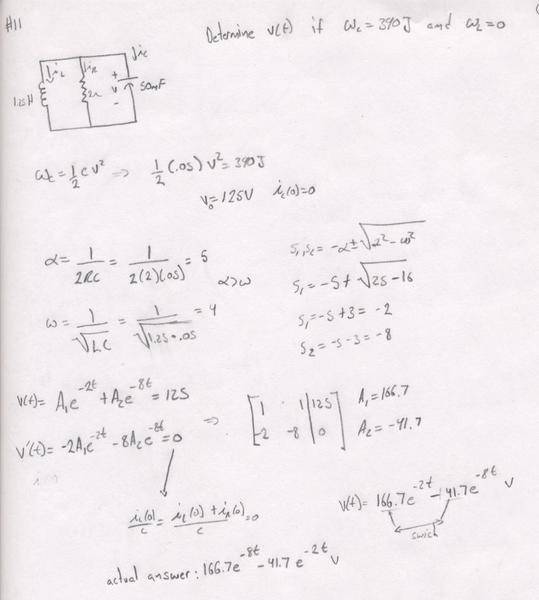 #11
Determine v(t) if ωc = 390J and ωL = 0
iL iR iC
1.25H 2Ω + v - 50mF
ωc = 1/2 cv² => 1/2 (.05) v² = 390J
v₀ = 125V iL(0) = 0
α = 1/2RC = 1/2(2)(.05) = 5
α > ω
ω = 1/√LC = 1/√1.25·.05 = 4
s₁,s₂ = -α ± √α² - ω²
s₁ = -5 + √25 - 16
s₁ = -5 + 3 = -2
s₂ = -5 - 3 = -8
v(t) = A₁e^-2t + A₂e^-8t = 125
v'(t) = -2A₁e^-2t - 8A₂e^-8t = 0
=> [1 1 | 125
-2 -8 | 0]
A₁ = 166.7
A₂ = -41.7
ic(0)/c = iL(0) + iR(0)/c = 0
v(t) = 166.7e^-2t - 41.7e^-8t v
switch
actual answer: 166.7e^-8t - 41.7e^-2t v